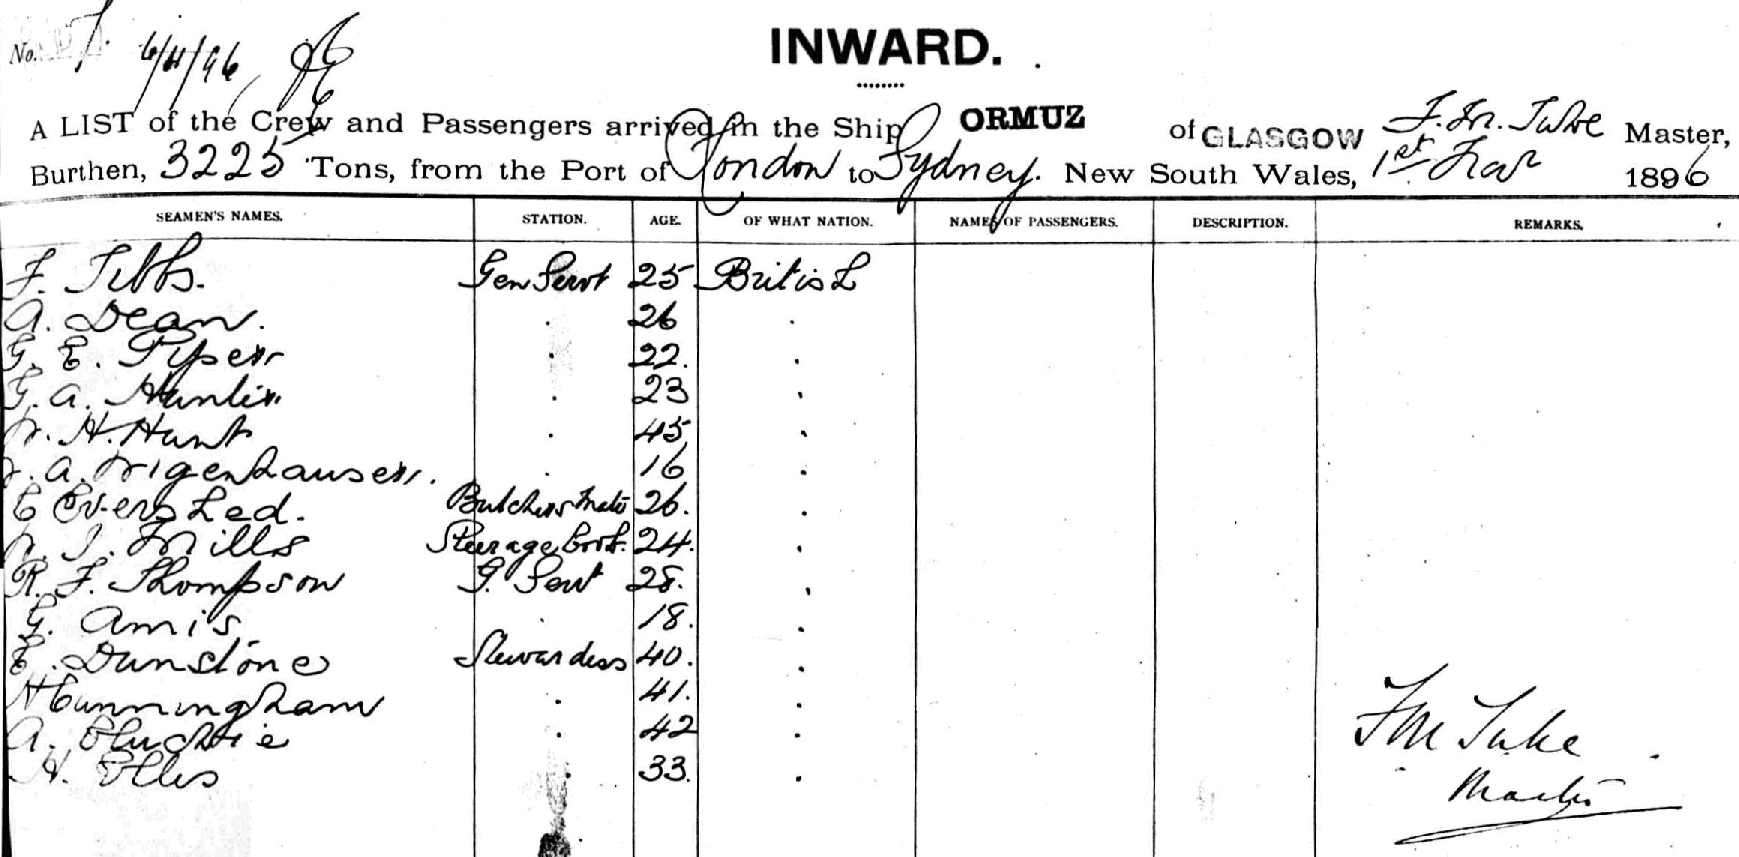 No. 7. 6/4/96
INWARD.
A LIST of the Crew and Passengers arrived in the Ship ORMUZ of GLASGOW F. M. Tuke Master,
Burthen, 3225 Tons, from the Port of London to Sydney. New South Wales, 1st 1896
SEAMEN'S NAMES. STATION. AGE. OF WHAT NATION. NAMES OF PASSENGERS. DESCRIPTION. REMARKS.
F. Tibbs. Gen Servt 25 British
A. Dean. 26
G. E. Piper 22.
G. A. 23
W. H. Hunt 45
A. 16
C Evershed. Butchers Mate 26.
Mills Steerage Cook. 24.
R. F. Thompson G. Servt 28.
G. Amis 18.
E. Dunstone Stewardess 40.
H Cunningham 41.
A. 42
H. Ellis 33.
F M Tuke
Master